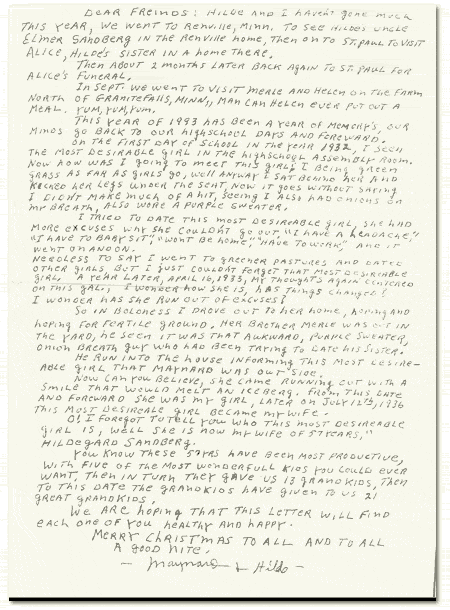 DEAR FREINDS: HILDE AND I HAVEN'T GONE MUCH
THIS YEAR, WE WENT TO RENVILLE, MINN. TO SEE HILDE'S UNCLE
ELMER SANDBERG IN THE RENVILLE HOME, THEN ON TO ST. PAUL TO VISIT
ALICE, HILDE'S SISTER IN A HOME THERE.
THEN ABOUT 2 MONTHS LATER BACK AGAIN TO ST. PAUL FOR
ALICE'S FUNERAL.
IN SEPT. WE WENT TO VISIT MERLE AND HELEN ON THE FARM
NORTH OF GRANITE FALLS, MINN., MAN CAN HELEN EVER PUT OUT A
MEAL. YUM, YUM, YUM.
THIS YEAR OF 1993 HAS BEEN A YEAR OF MEMORY'S, OUR
MINDS GO BACK TO OUR HIGHSCHOOL DAYS AND FOREWARD.
ON THE FIRST DAY OF SCHOOL IN THE YEAR 1932, I SEEN
THE MOST DESIREABLE GIRL IN THE HIGHSCHOOL ASSEMBLY ROOM.
NOW HOW WAS I GOING TO MEET THIS GIRL, I BEING GREEN
GRASS AS FAR AS GIRLS GO, WELL ANYWAY I SAT BEHIND HER AND
KICKED HER LEGS UNDER THE SEAT, NOW IT GOES WITHOUT SAYING
I DIDN'T MAKE MUCH OF A HIT, SEEING I ALSO HAD ONIONS ON
MY BREATH, ALSO WORE A PURPLE SWEATER.
I TRIED TO DATE THIS MOST DESIREABLE GIRL, SHE HAD
MORE EXCUSES WHY SHE COULDN'T GO OUT, "I HAVE A HEADACHE,"
"I HAVE TO BABY SIT," "WON'T BE HOME," "HAVE TO WORK," AND IT
WENT ON AND ON.
NEEDLESS TO SAY I WENT TO GREENER PASTURES AND DATED
OTHER GIRLS, BUT I JUST COULDN'T FORGET THAT MOST DESIRABLE
GIRL. A YEAR LATER, APRIL 16, 1935, MY THOUGHTS AGAIN CENTERED
ON THIS GAL, I WONDER HOW SHE IS, HAS THINGS CHANGED?
I WONDER HAS SHE RUN OUT OF EXCUSES?
SO IN BOLDNESS I DROVE OUT TO HER HOME, HOPING AND
HOPING FOR FERTILE GROUND, HER BRETHER MERLE WAS OUT IN
THE YARD, HE SEEN IT WAS THAT AWKWARD, PURPLE SWEATER,
ONION BREATH GUY WHO HAD BEEN TRYING TO DATE HIS SISTER.
HE RUN INTO THE HOUSE INFORMING THIS MOST DESIRE-
ABLE GIRL THAT MAYNARD WAS OUT SIDE.
NOW CAN YOU BELIEVE, SHE CAME RUNNING OUT WITH A
SMILE THAT WOULD MELT AN ICEBERG. FROM THIS DATE
AND FOREWARD SHE WAS MY GIRL, LATER ON JULY 12TH, 1936
THIS MOST DESIREALE GIRL BECAME MY WIFE.
O, I FOREGOT TO TELL YOU WHO THIS MOST DESIREABLE
GIRL IS, WELL SHE IS NOW MY WIFE OF 57 YEARS,"
HILDEGARD SANDBERG.
YOU KNOW THESE 57 YRS HAVE BEEN MOST PRODUCTIVE,
WITH FIVE OF THE MOST WONDERFULL KIDS YOU COULD EVER
WANT, THEN IN TURN THEY GAVE US 13 GRANDKIDS, THEN
TO THIS DATE THE GRANDKIDS HAVE GIVEN TO US 21
GREAT GRANDKIDS.
WE ARE HOPING THAT THIS LETTER WILL FIND
EACH ONE OF YOU HEALTHY AND HAPPY.
MERRY CHRISTMAS TO ALL AND TO ALL
A GOOD NITE.
- Maynard & Hilde -